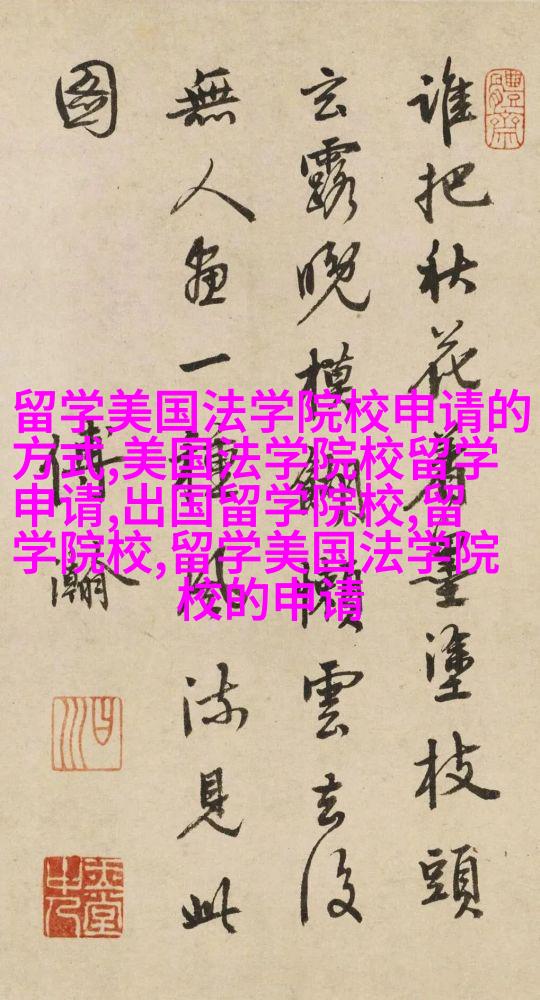 誰把秋花着墨塗枝頭
玄露晚模糊懶雲去後
無人畫一種風流見此
圖
傅瀚
體齋
留学美国法学院校申请的
方式,美国法学院校留学
申请,出国留学院校,留
学院校,留学美国法学院
校的申请